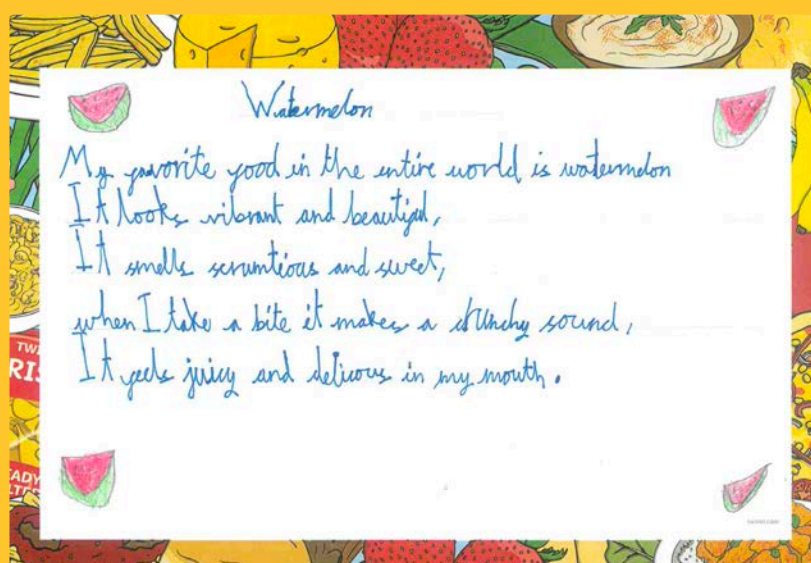 Watermelon
My favorite food in the entire world is watermelon
It looks vibrant and beautiful,
It smells scrumtious and sweet,
when I take a bite it makes a crunchy sound,
It feels juicy and delicous in my mouth.
TWI
RIS
EADY
LTED